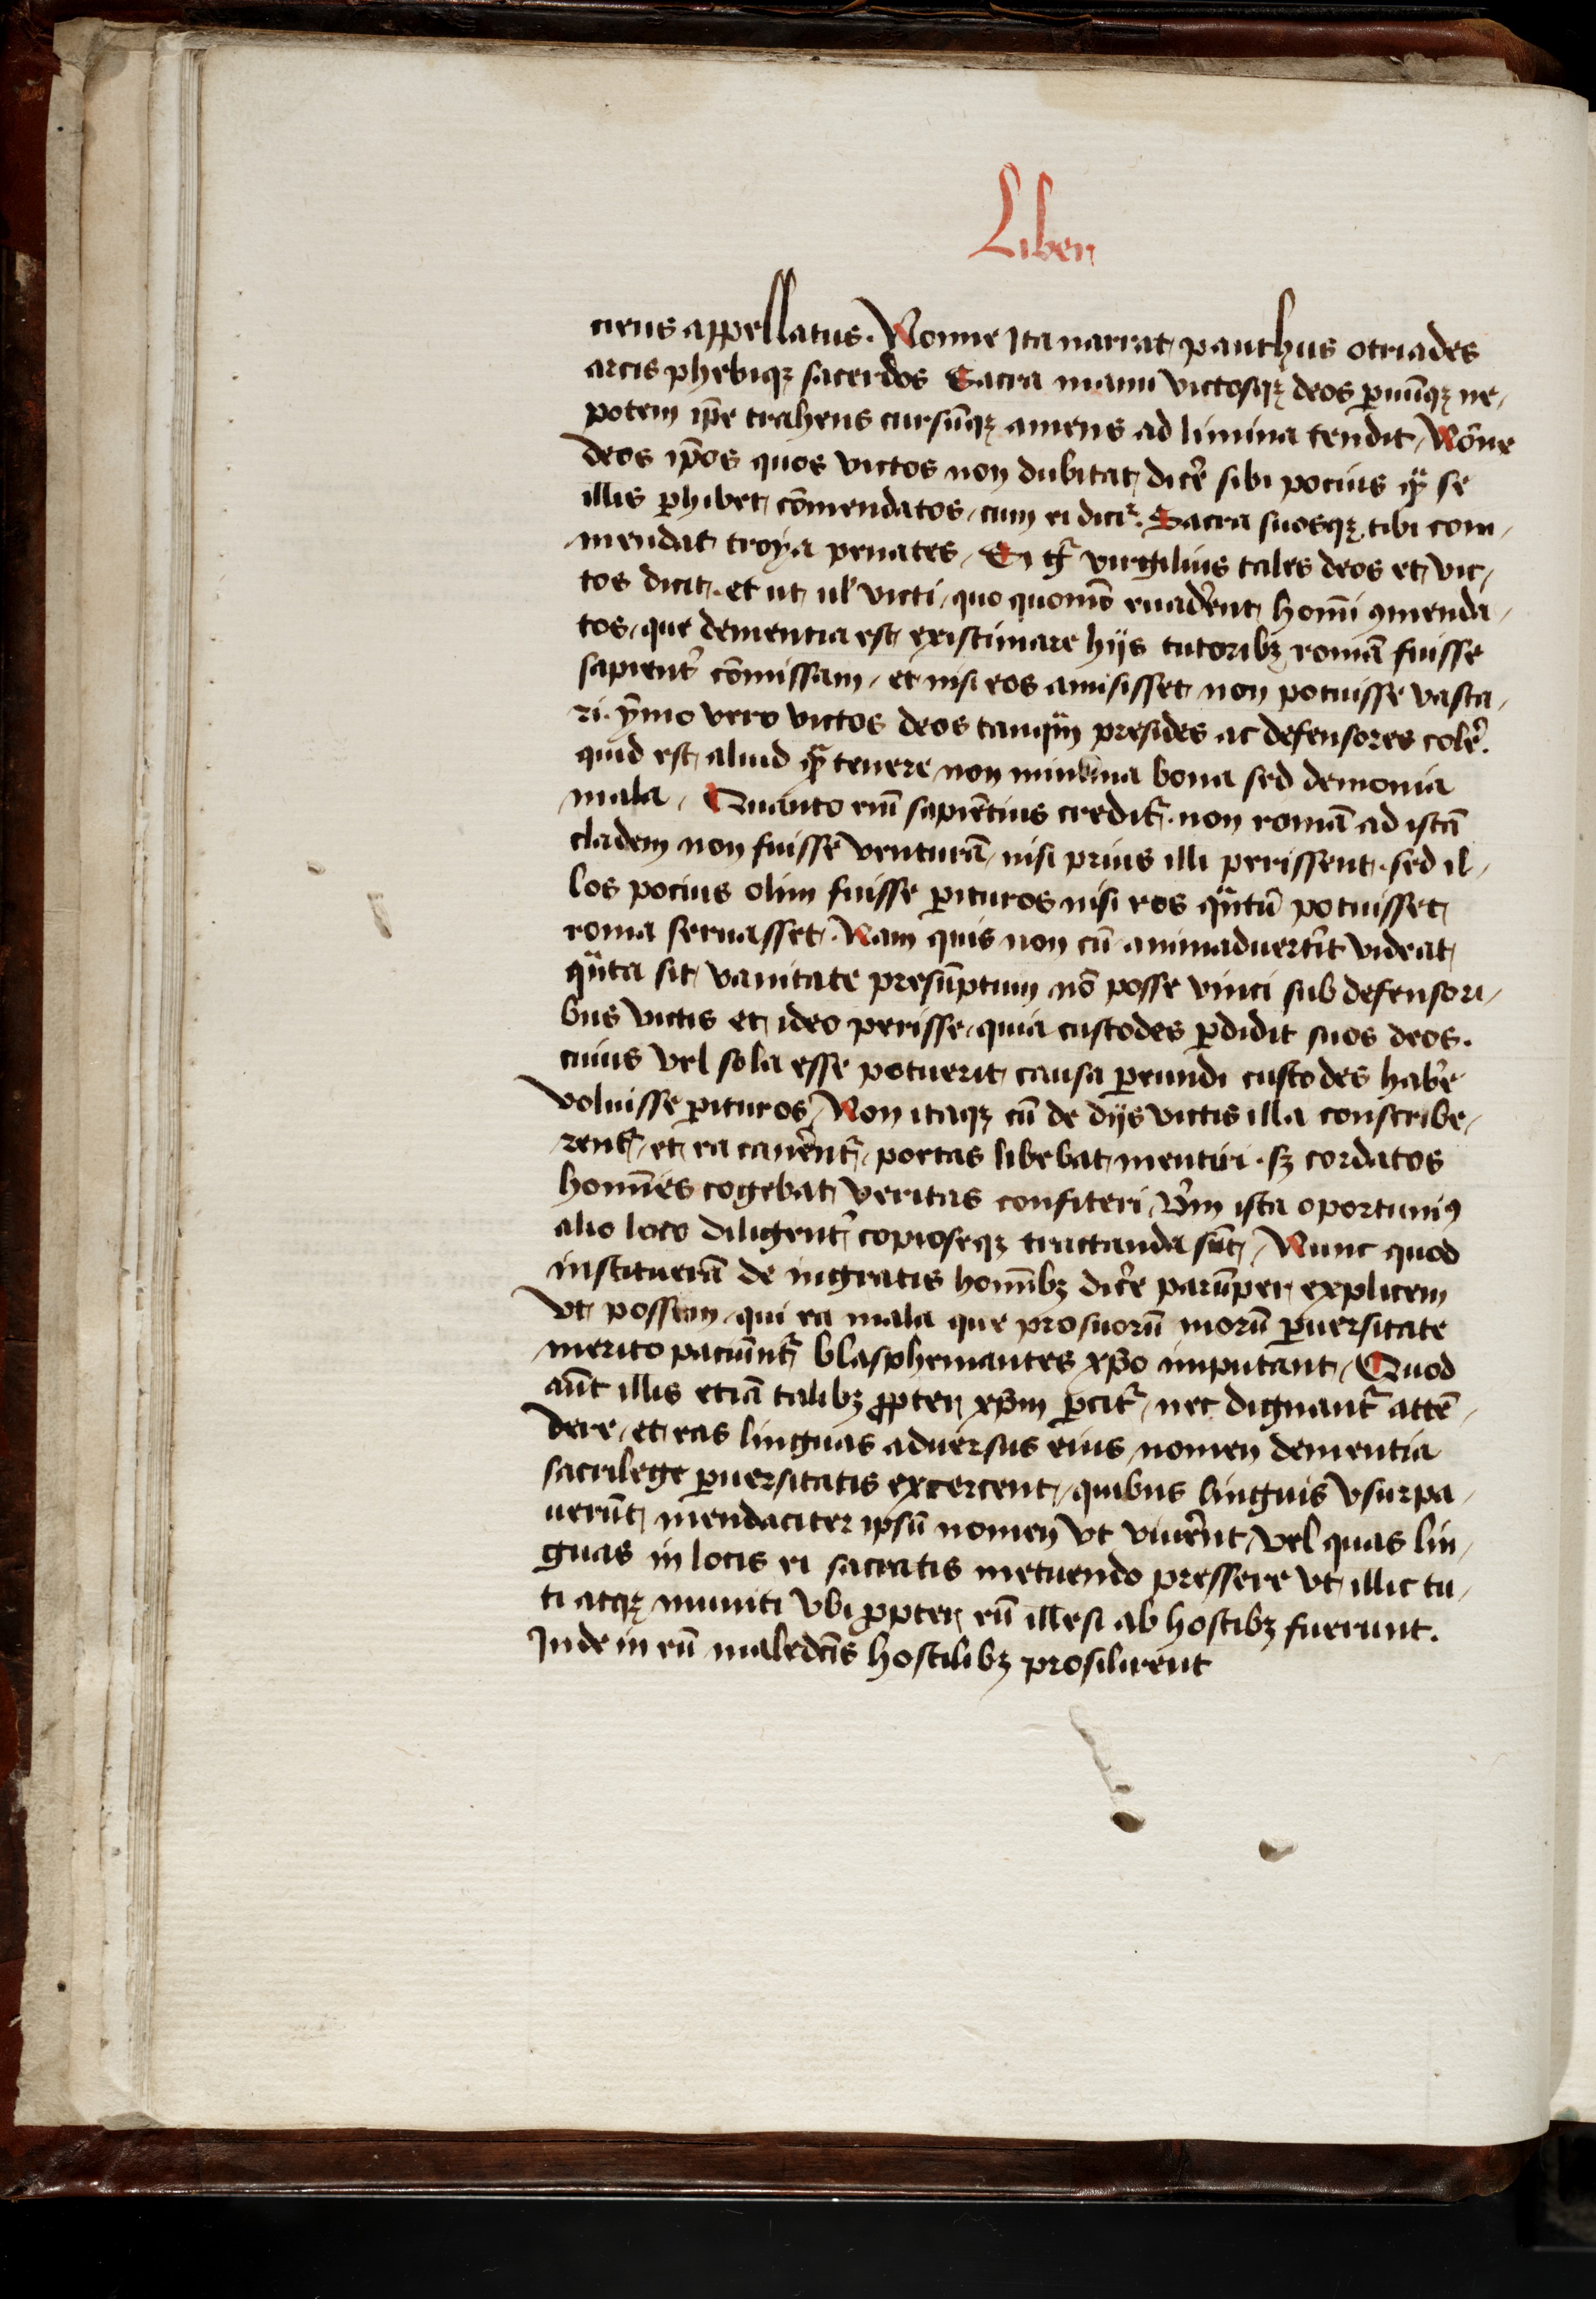 Liber
ciens appellatus. Nonne Ita narrat panthus otriades
arcis phebiqꝫ sacerdos Sacra manu victosqꝫ deos ꝑuūqꝫ ne/
potem ip̄e trahens cursūqꝫ amens ad limina tendit/ Nōne
deos ip̄os quos victos non dubitat dice᷑ sibi pocius qᷓ se
illis ꝑhibet cōmendatos/ cum ei dicit᷑. Sacra suosqꝫ tibi com/
mendat troya penates/ Si gͦ virgilius tales deos et vic/
tos dicit. et ut ul̛ victi/ quo quomō euade᷑nt homī ꝯmenda/
tos/ que dementia est existimare hijs tutoribꝫ romā fuisse
sapient᷑ cōmissam/ et nisi eos amisisset non potuisse vasta/
ri. ȳmo vero victos deos tanqᷓm presides ac defensores cole᷑.
quid est aliud qᷓ tenere non numina bona sed demonia
mala/ Quanto em̄ sapiētius credit᷑. non romā ad istā
cladem non fuisse venturā/ nisi prius illi perissent. sed il/
los pocius olim fuisse ꝑituros nisi eos qᷓntū potuisset
roma seruasset. Nam quis non cū animaduertit videat
qᷓnta sit vanitate presūptum nō posse vinci sub defensori/
bus victis et ideo perisse/ quia custodes ꝑdidit suos deos.
cuius vel sola esse potuerit causa ꝑeundi custodes habe᷑
voluisse ꝑituros/ Non itaqꝫ cū de dijs victis illa conscribe/
rent᷑/ et ea cane᷑nt᷑/ poetas libebat mentiri. sꝫ cordatos
homines cogebat veritas confiteri/ Ve᷑m ista oportuniꝯ
alio loco diligent᷑ copioseqꝫ tractanda sūt/ Nunc quod
institueram̄ de ingratis hominibꝫ dice᷑ parūper explicem
vt possum/ qui ea mala que pro suorū morū ꝑuersitate
merito paciūnt᷑ blasphemantes xp̄o imputant/ Quod
aūt illis etiā talibꝫ ꝓpter xp̄m ꝑcit᷑/ nec dignant᷑ attē/
dere/ et eas linguas aduersus eius nomen dementia
sacrilege ꝑuersitatis excercent/ quibus linguis vsurpa/
uerūt mendaciter ipsū nomen vt viue᷑nt/ vel quas lin/
guas in locis ei sacratis metuendo pressere vt illic tu/
ti atqꝫ muniti vbi ꝓpter eū illesi ab hostibꝫ fuerunt.
Inde in eū maledc̄is hostilibꝫ prosilirent